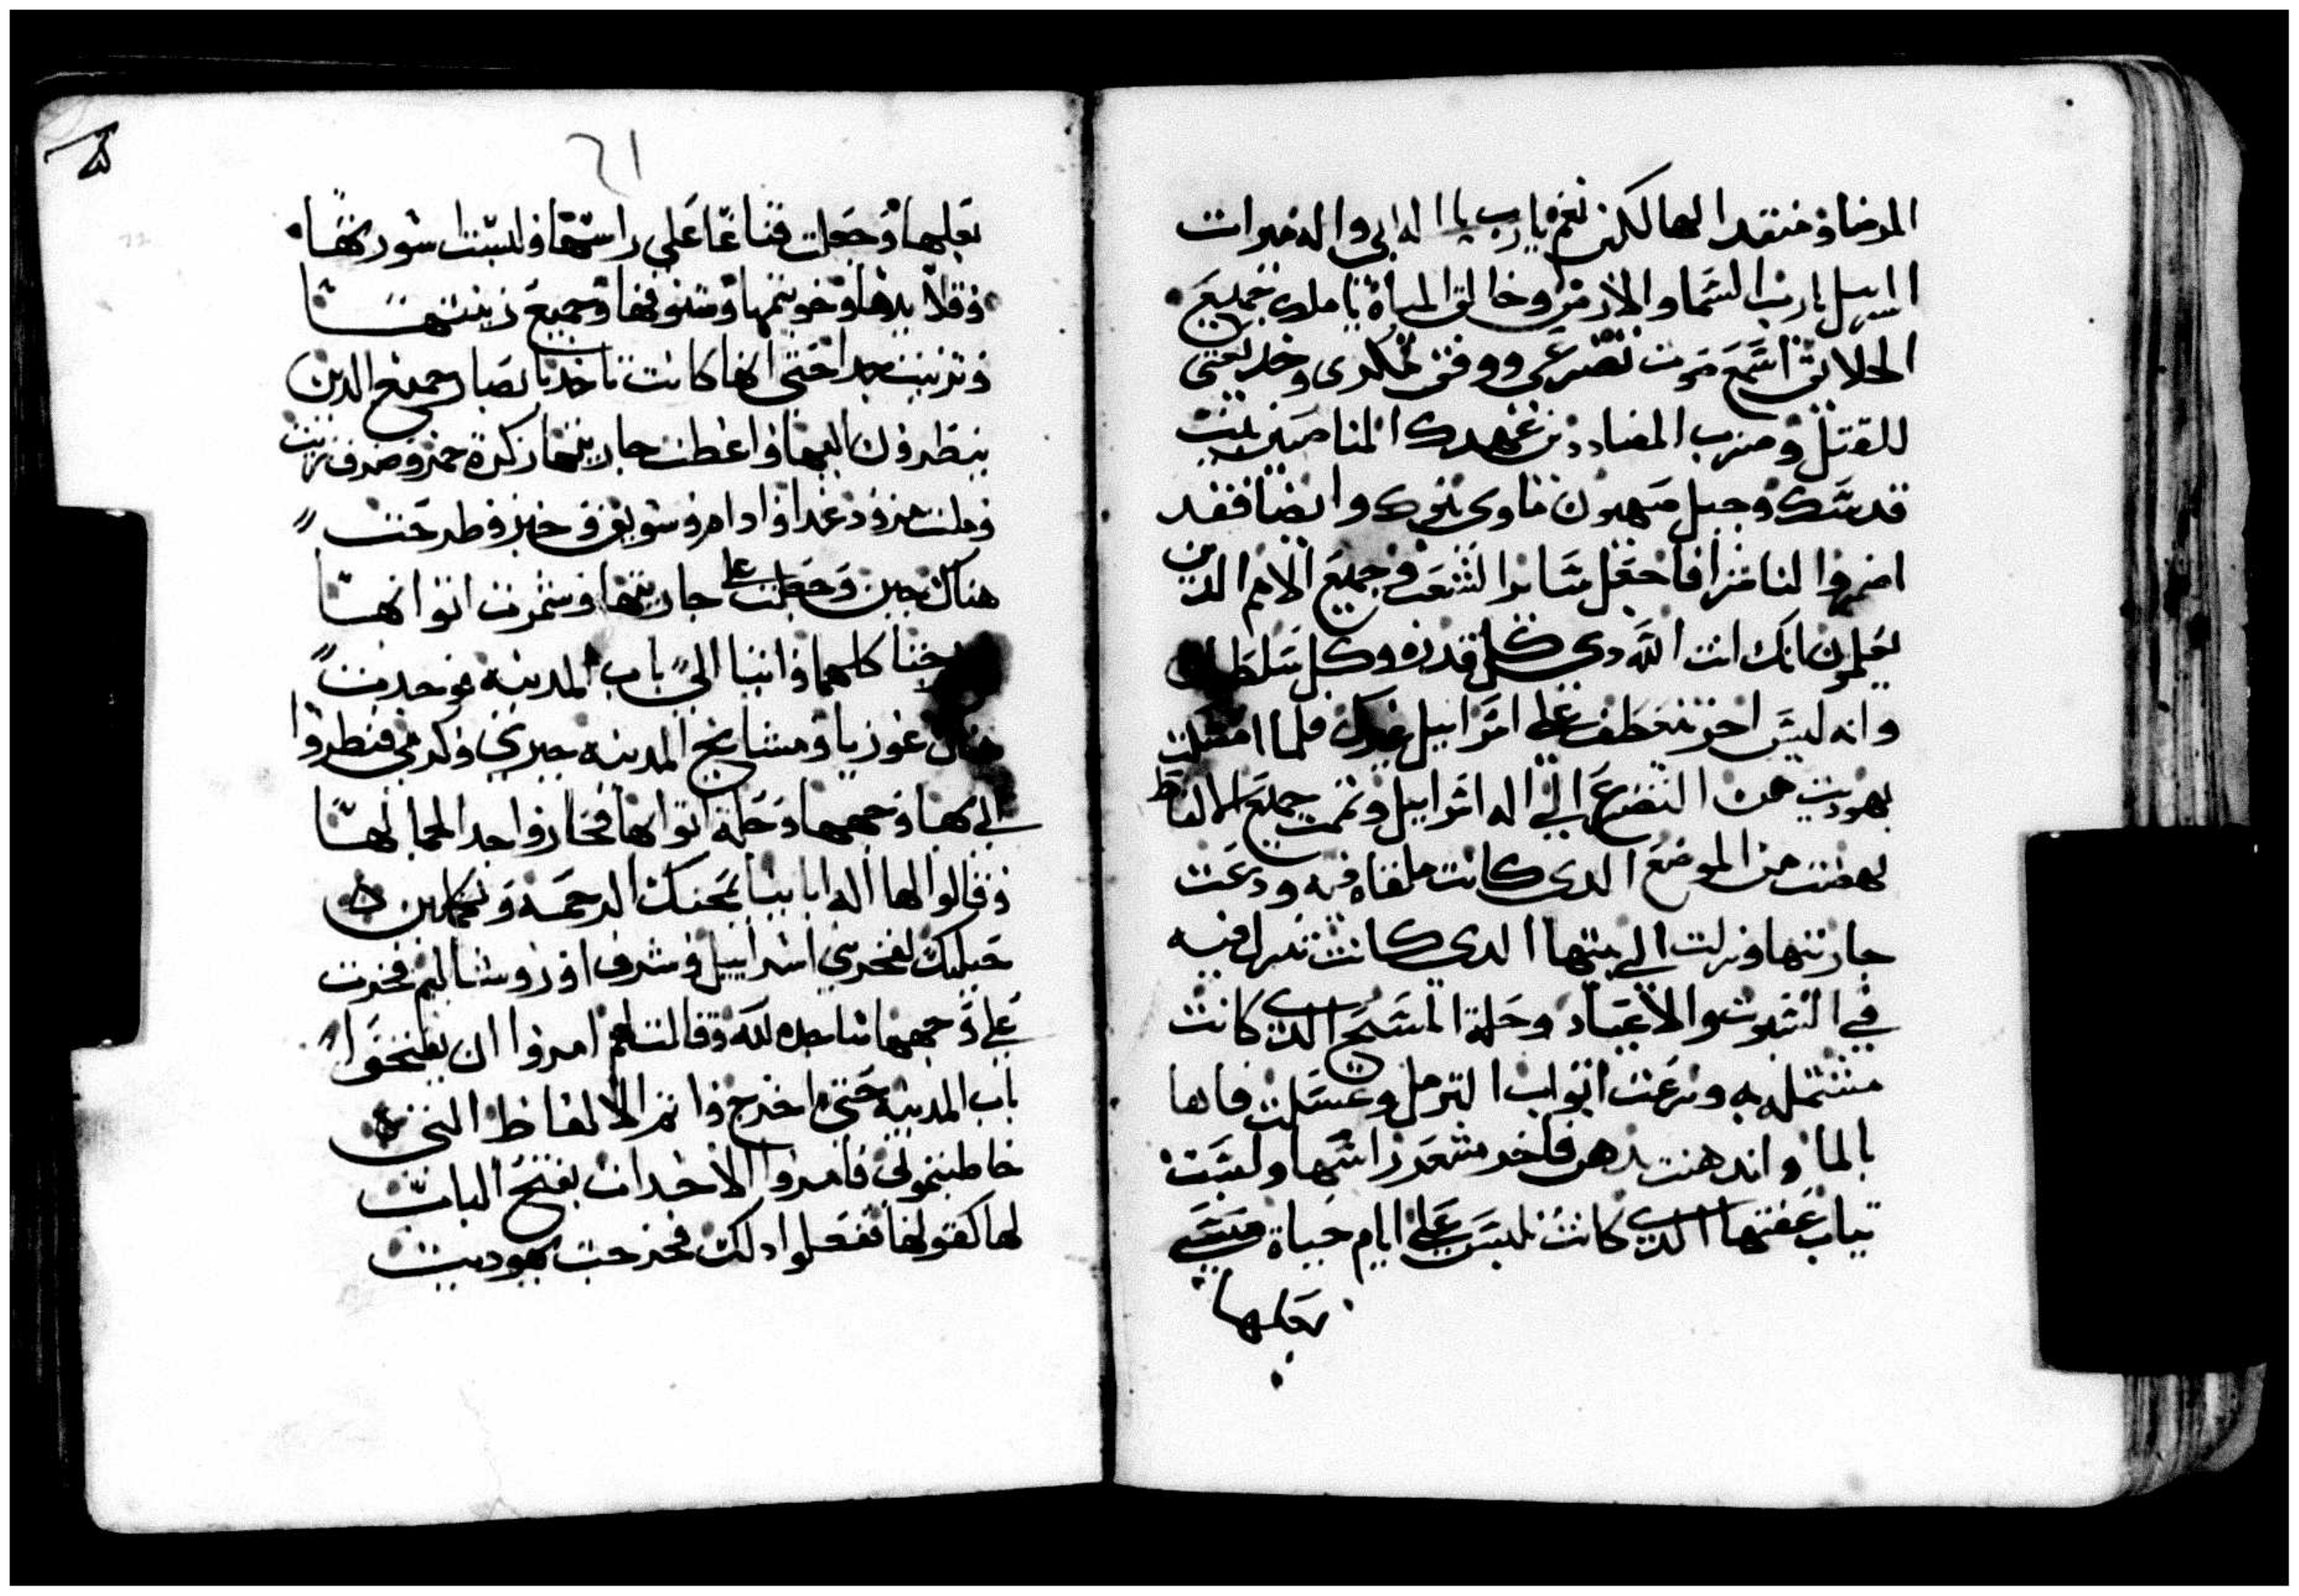 المرضا ومنقدا لهالكين نعم يارب يا اله ابي واله ميرات
اسراييل يارب السما والارض وخالق المياه يا ملك جميع
الخلايق اسمع صوت تضرعي ووفق تملكدى وخديعتي
للقتل وضرب المضاددين عهدك المناصبين بيت
قدسك وجبل صهيون ماوي بنوك وايضا فقد
اضمروا لنا شرا فاجعل ساير الشعب وجميع الامم الدين
يعلمون انك انت الله دي كل قدره وكل سلطان
وانه ليس اخر يتعطف علي اسراييل غيرك فلما اكملت
يهوديت من التضرع الي اله اسراييل وتمت جميع الالفاظ
نهضت من الموضع الدى كانت ملقاه فيه ودعت
جاريتها ونزلت الي بيتها الدي كانت تنزل فيه
في السبوت والاعياد وحلة المسح الدي كانت
مشتمله به ونزعت اتواب الترمل وغسلت فاها
بالما واندهنت بدهن فاخر شعر راسها ولبست
تياب عفتها الدي كانت تلبس علي ايام حياة منسي
بعلها
21
بعلها وجعلت قناعا علي راسها ولبست اسورتها
وقلايدها وخويتمها وشنوفها وجميع زينتها
وتزينت جدا حتي انها كانت تاخد بابصار جميع الدين
ينظرون اليها واعطت جاريتها زكرة خمر وظرف زيت
وملت مزود عدا وادامر وسويق وخبز وطرحت
هناك جبن وجعلت علي جاريتها وشمرت اتوابها
وخرجتا كلاهما واتيا الي باب المدينه فوجدت
هناك عوزيا ومشايخ المدينه جبري وكرمي فنظروا
الي بها وجهها وحلة اتوابها فحاروا جدا لجمالها
وقالوا لها اله اباينا يمنحك الرحمه وتكملين
حيلتك لفخر بني اسراييل وشرف اوروشاليم فخرت
علي وجهها ساجده لله وقالت لهم امروا ان يفتحوا
باب المدينه حتي اخرج واتم الالفاظ التي
خاطبتموني فامروا الاحدات بفتح الباب
لها كقولها ففعلوا دلك فخرجت يهوديت